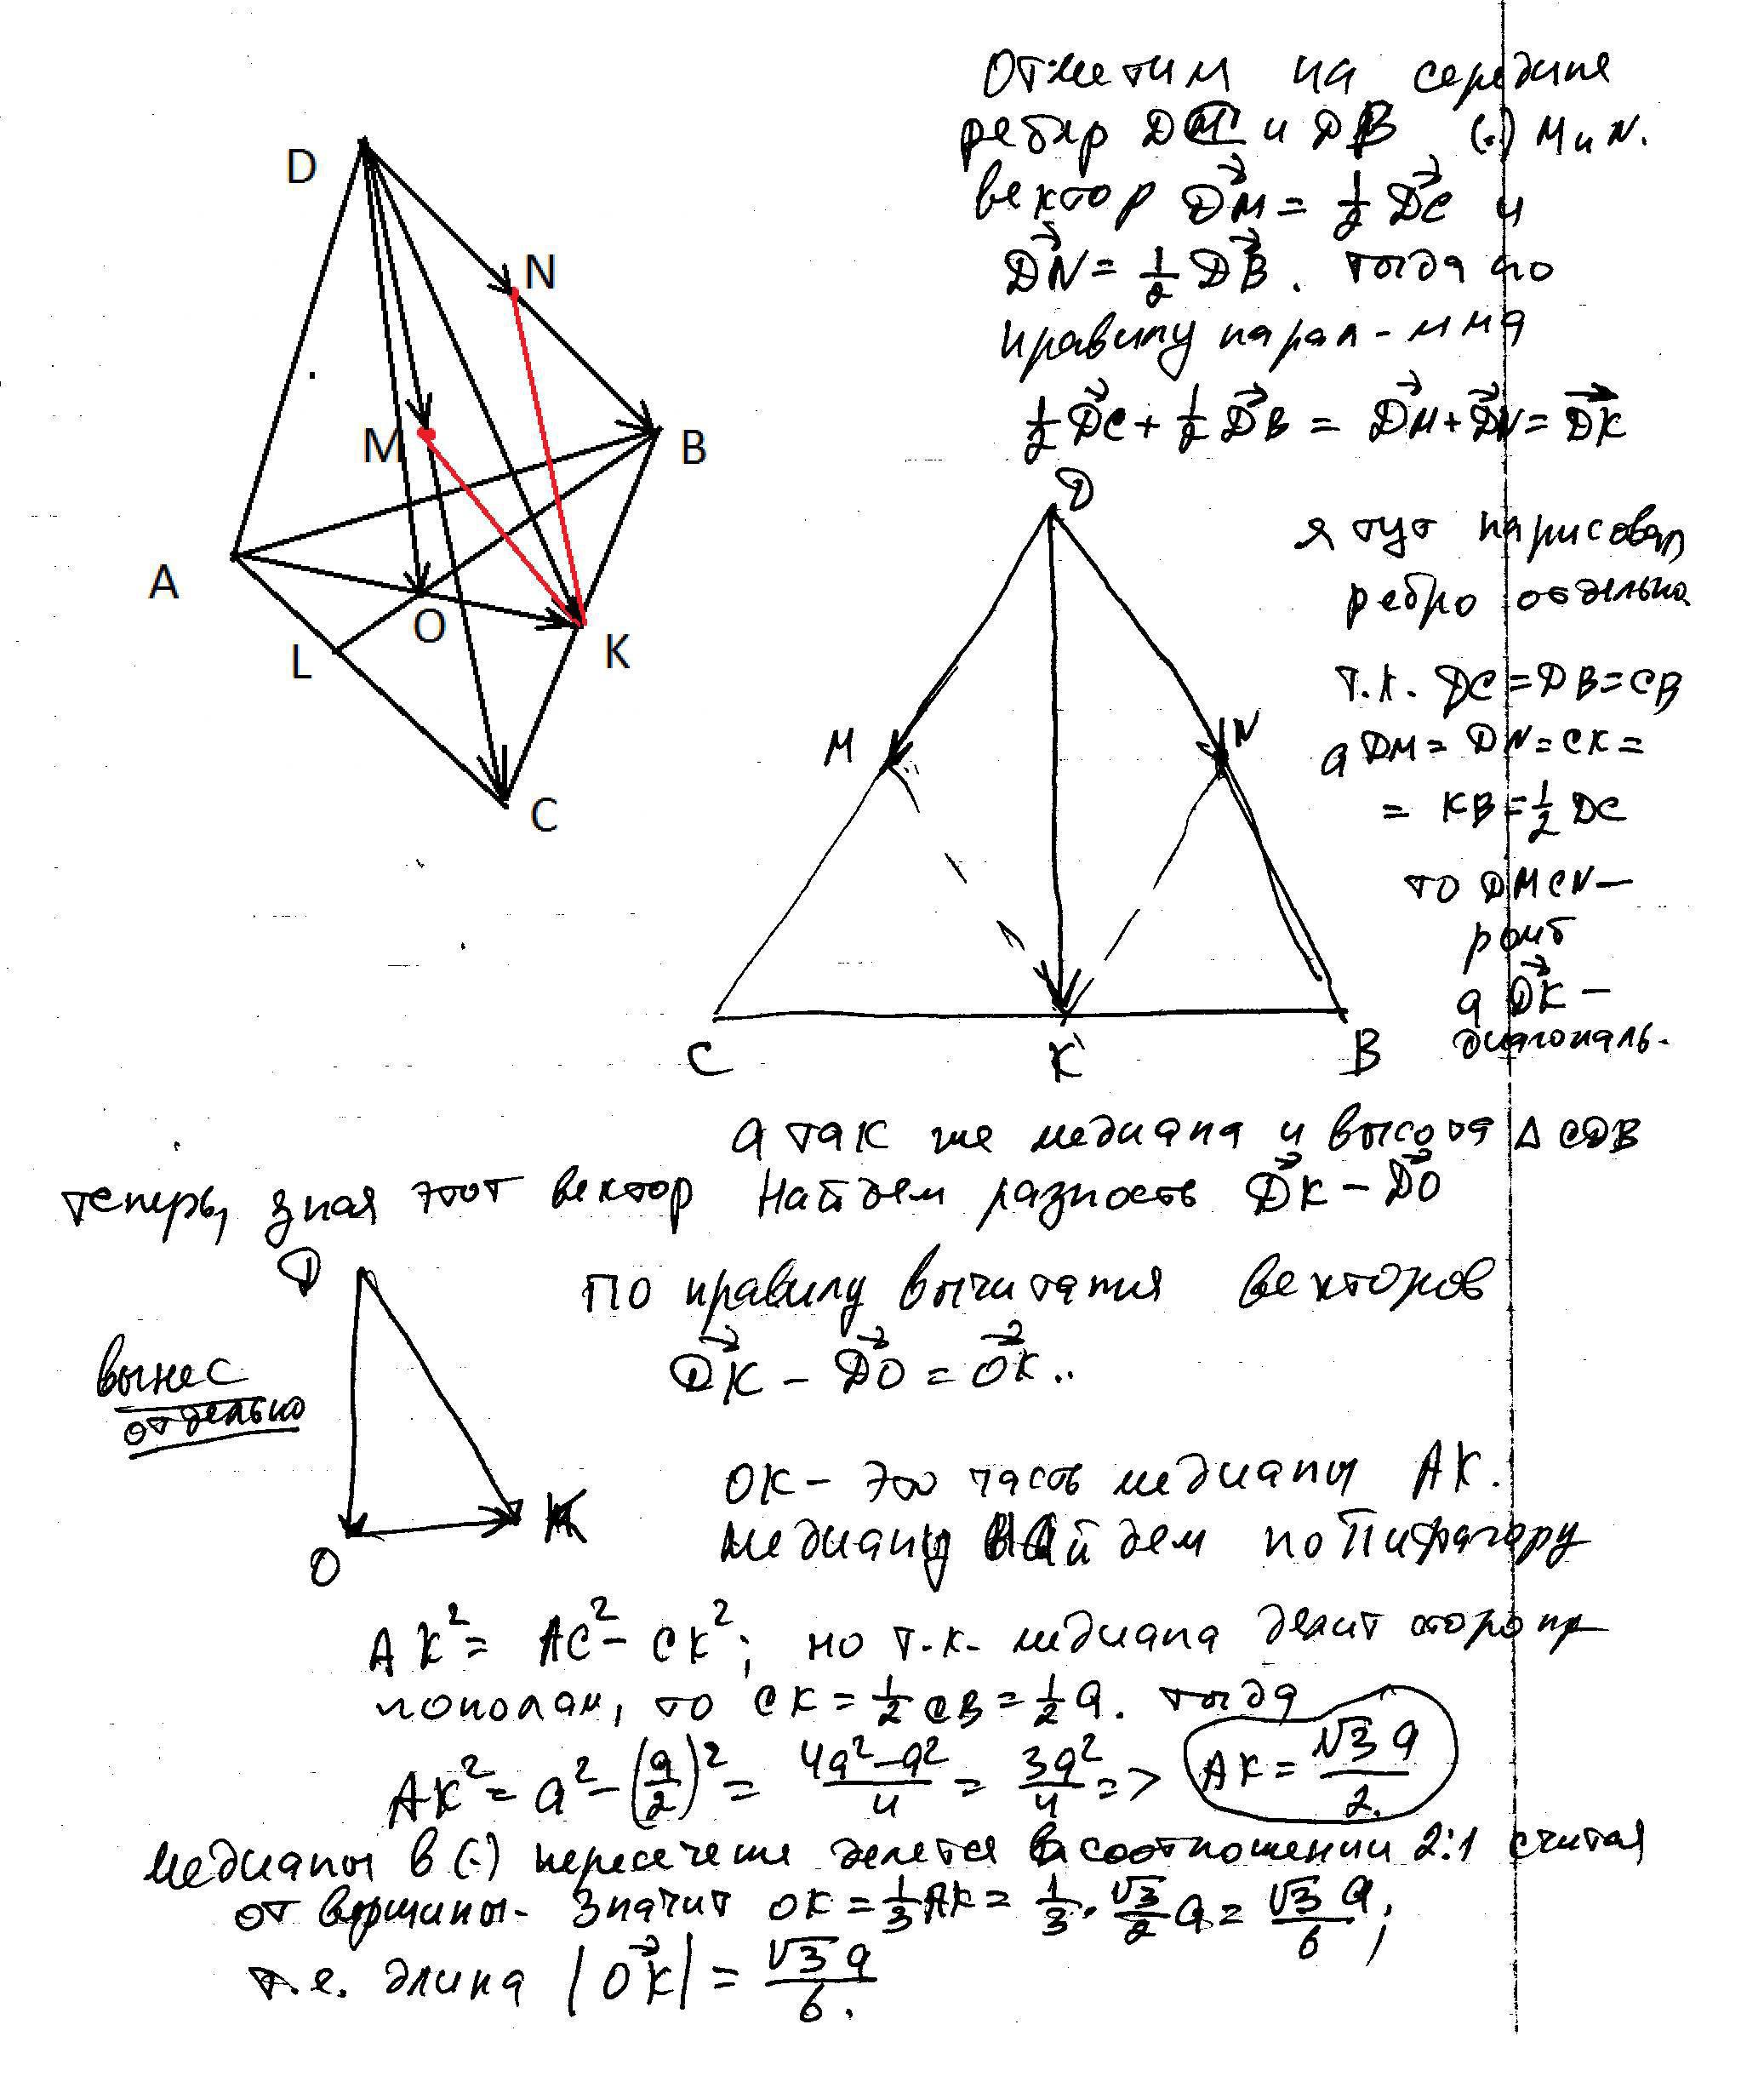 Отметим на середине
ребер DC и DB (·) M и N.
вектор DM = 1/2 DC и
DN = 1/2 DB. тогда по
правилу парал-мма
1/2 DC + 1/2 DB = DM + DN = DK
D
N
M
B
A
O
L
K
C
D
M
N
C
K
B
я тут нарисовал
ребро отдельно
т.к. DC = DB = CB
а DM = DN = CK =
= KB = 1/2 DC
то DMCN —
ромб
а DK —
диагональ.
а так же медиана и высота Δ CDB
теперь, зная этот вектор найдем разность DK – DO
D
вынес
отдельно
O
K
по правилу вычитания векторов
DK – DO = OK..
OK – это часть медианы AK.
медиану найдем по Пифагору
AK² = AC² – CK²; но т.к. медиана делит сторону
пополам, то CK = 1/2 CB = 1/2 a. тогда
AK² = a² – (a/2)² = (4a² – a²)/4 = 3a²/4 => AK = √3 a/2.
медианы в (·) пересечения делется в соотношении 2:1 считая
от вершины. Значит OK = 1/3 AK = 1/3 · √3/2 a = √3 a/6;
т.е. длина |OK| = √3 a/6.